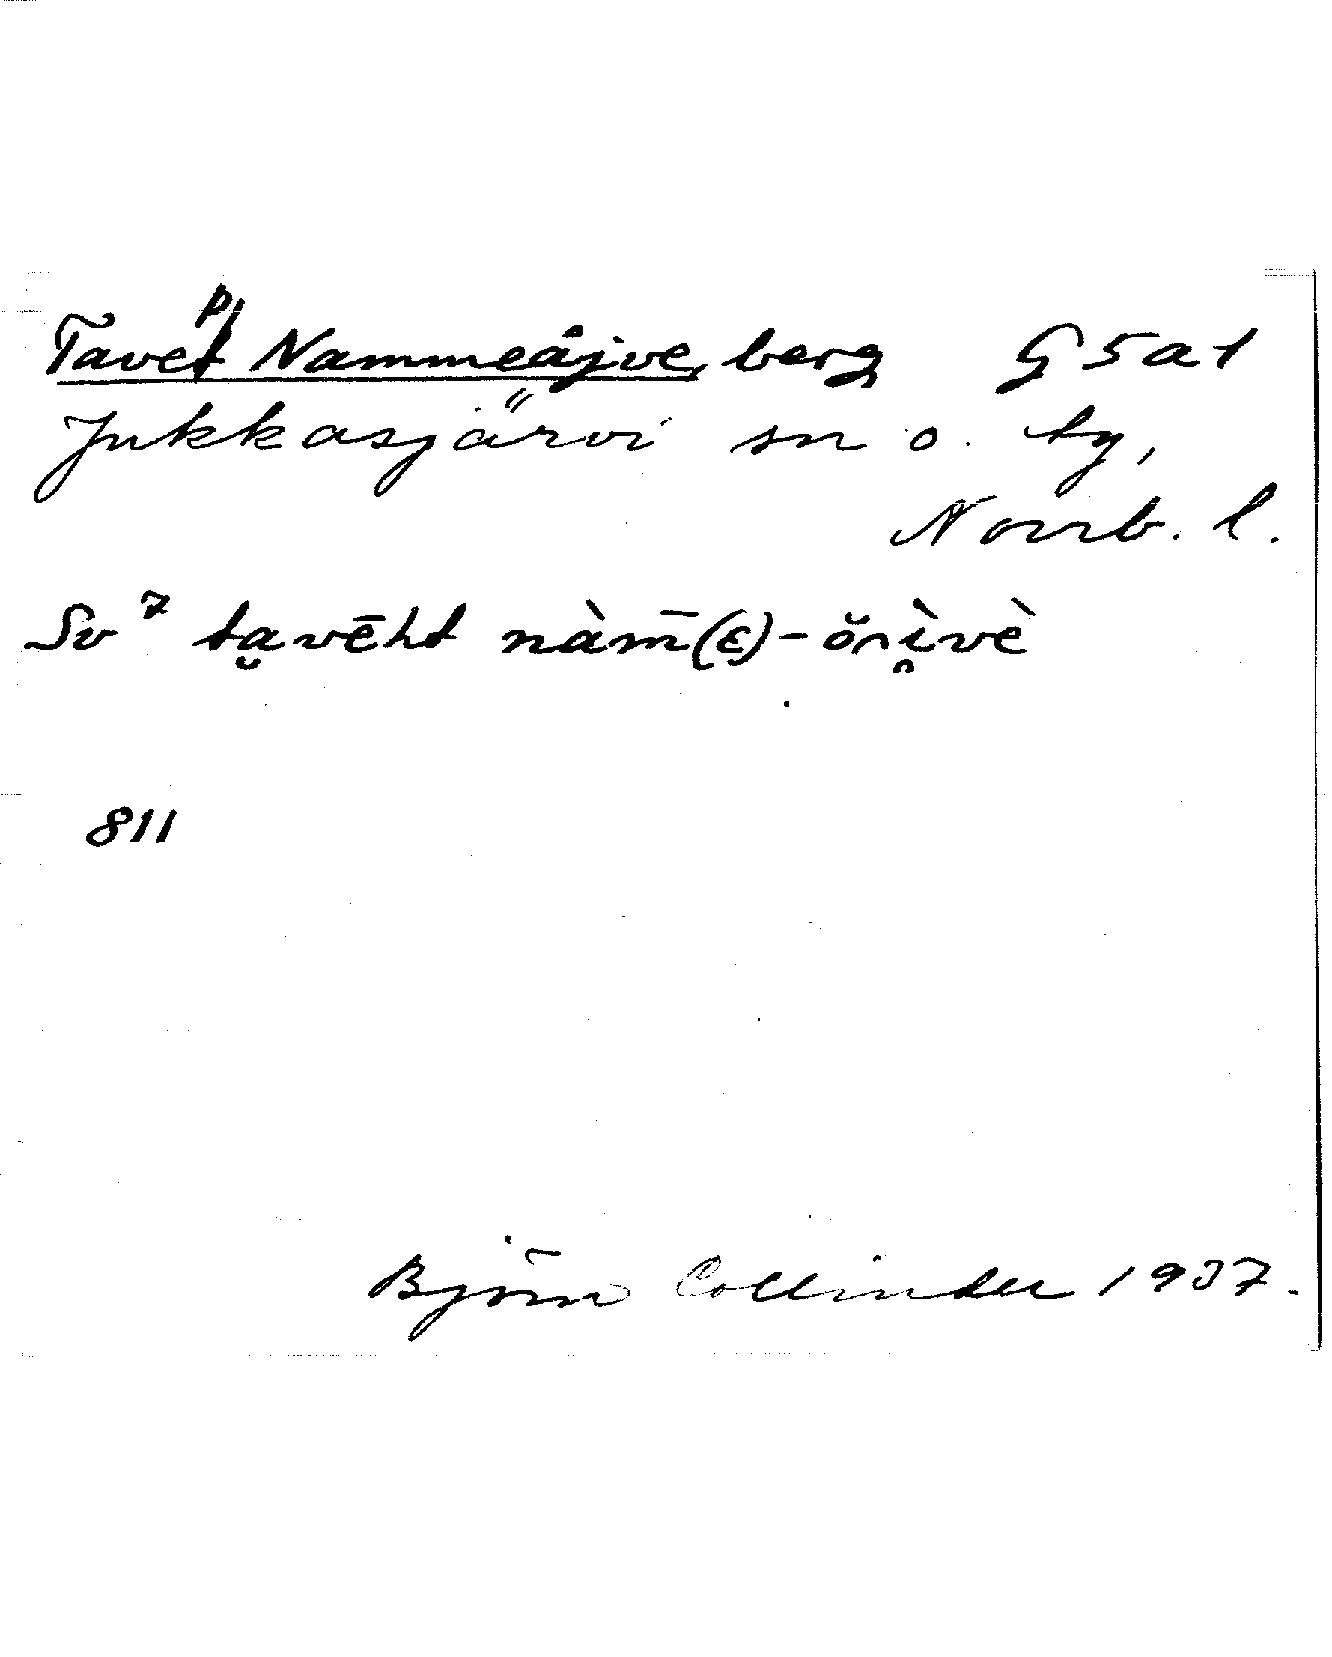 Tavep Nammeåjve, berg G5a1
Jukkasjärvi sn o. tg,
Norrb. l.
Sv⁷ ta̮vēht nàm̄(ɛ)-ŏnì̯vè
811
Björn Collinder 1937.